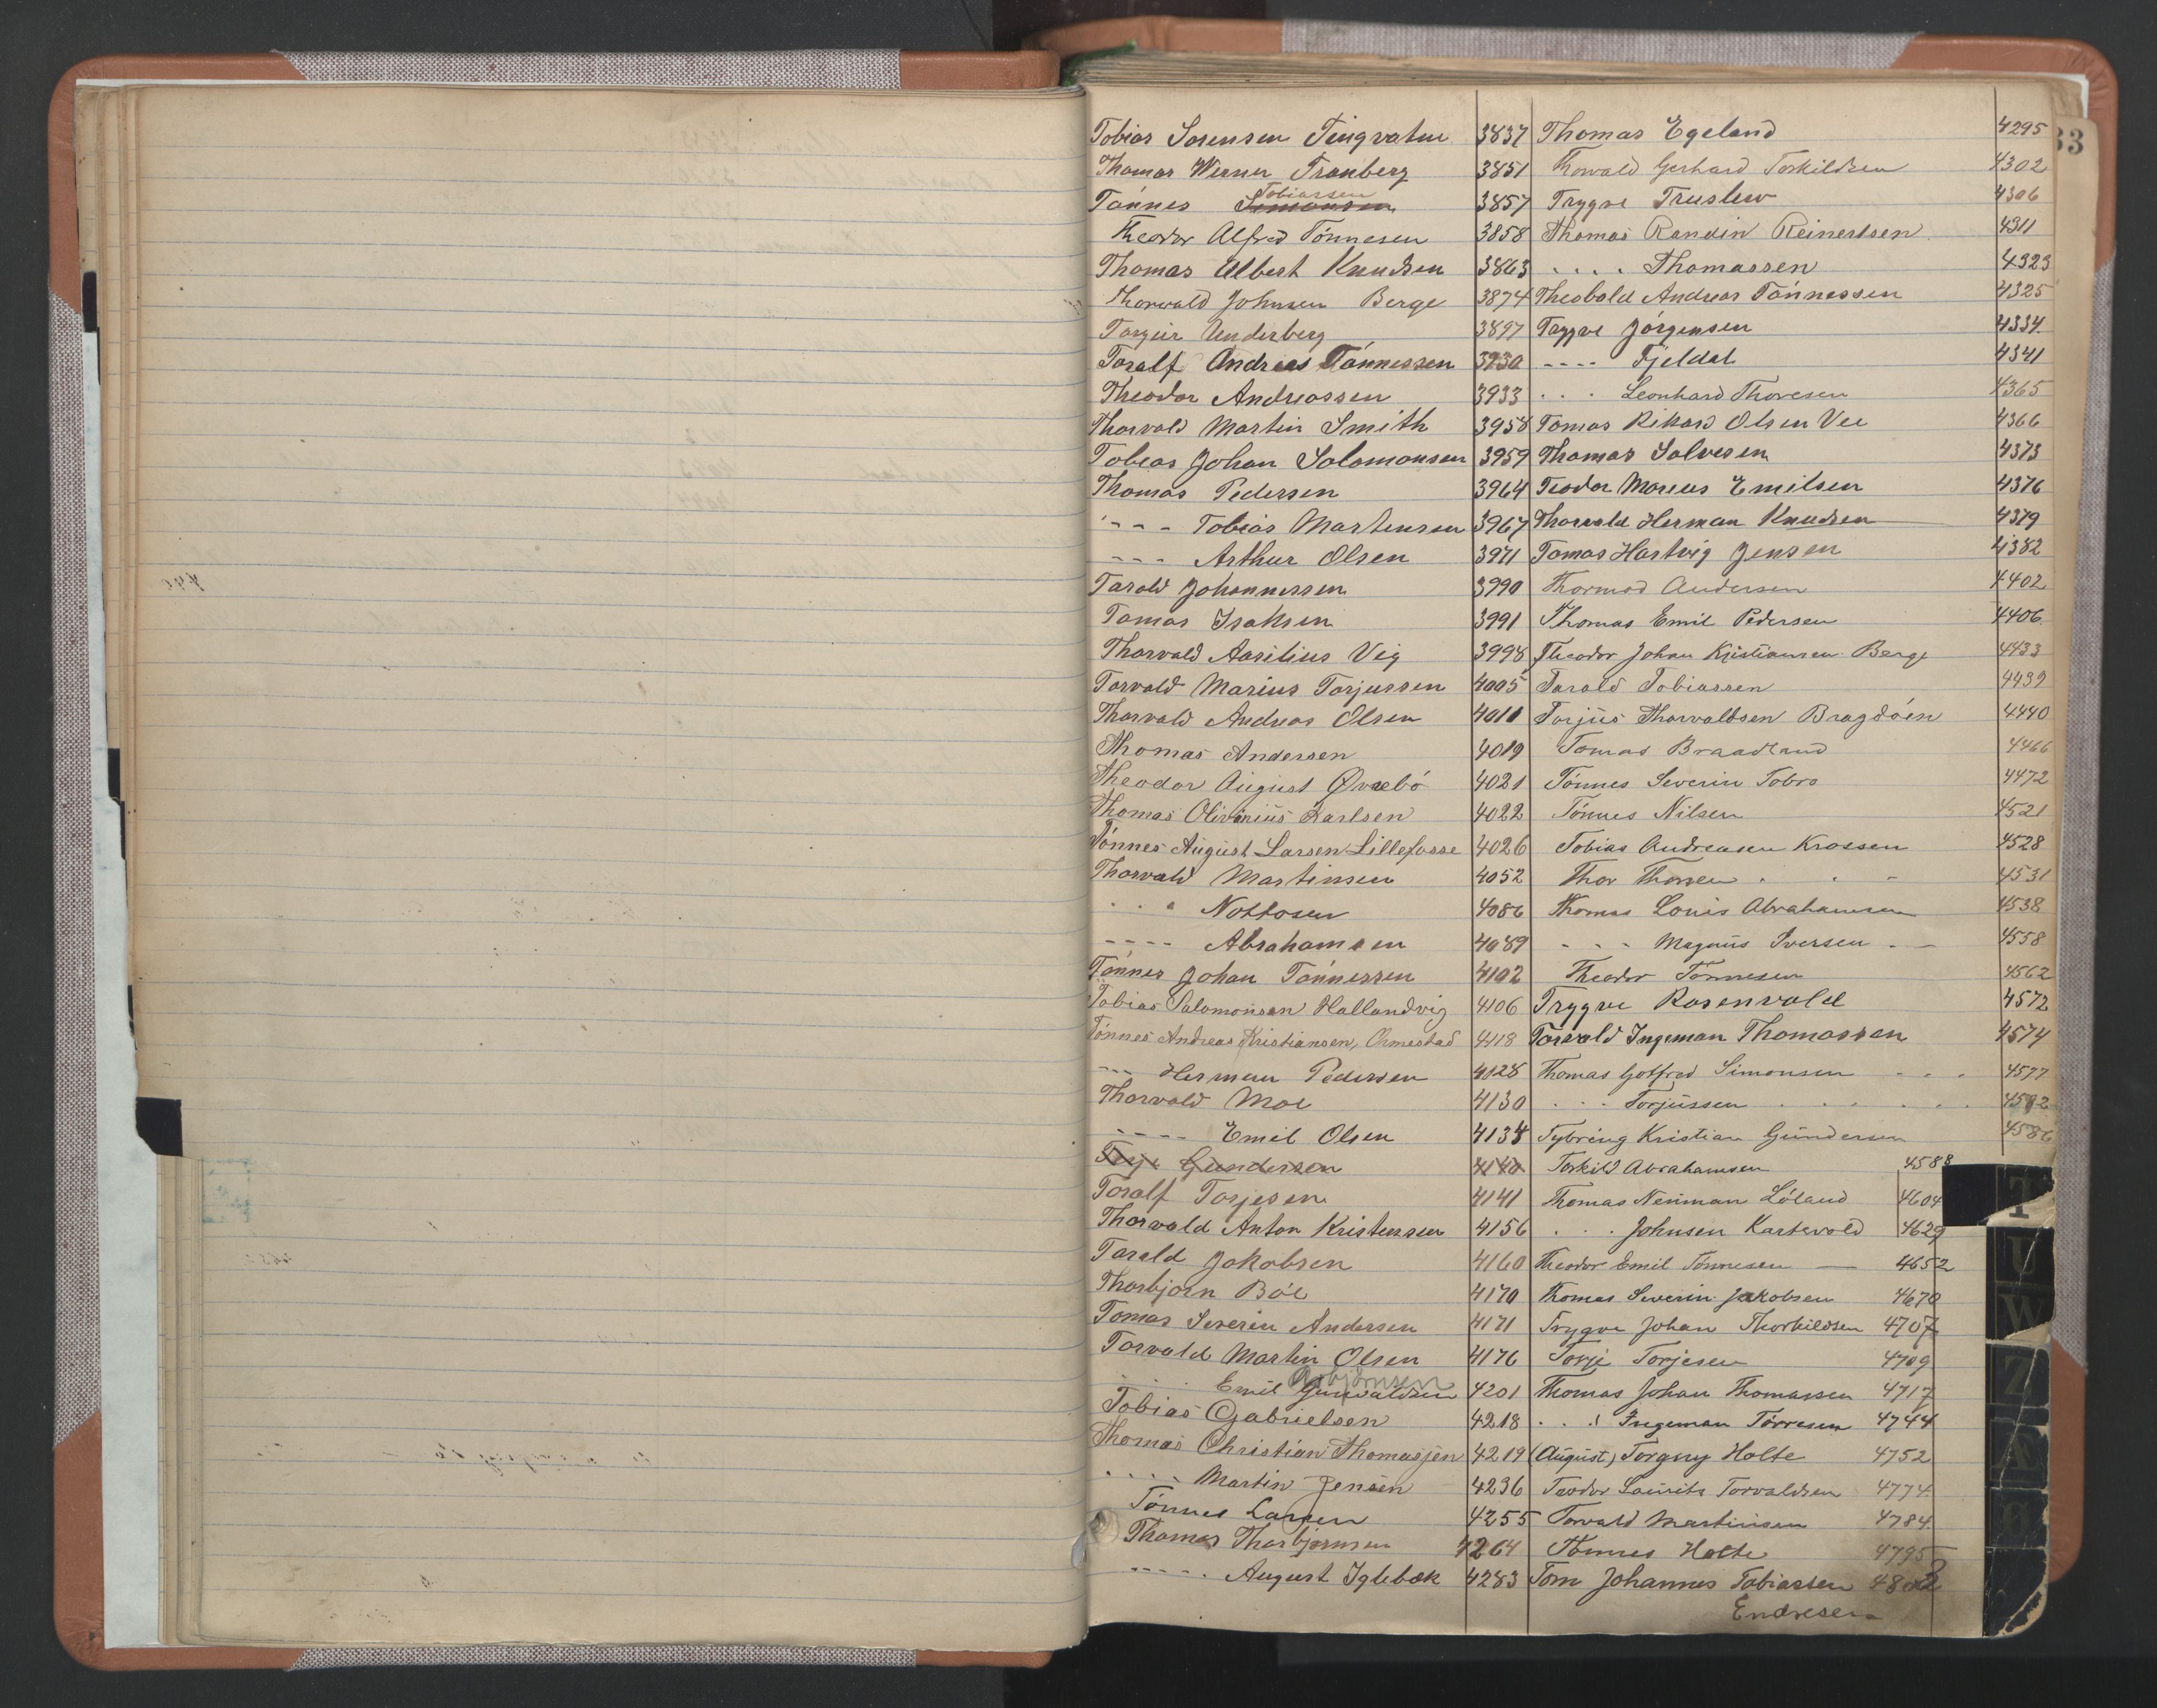 33
Tobias Sørensen Tingvatne 3837
Thomas Werner Tranberg 3851
Tobiassen
Tónnes Simonsen 3857
Theodor Alfred Tónnesen 3858
Thomas Albert Knudsen 3863
Thorvald Johnsen Berge 3874
Torgeir Underberg 3897
Toralf Andreas Tónnessen 3930
Theodor Andreassen 3933
Thorvald Martin Smith 3958
Tobias Johan Salomonsen 3959
Thomas Pedersen 3964
- - - Tobias Martinsen 3967
- - - Arthur Olsen 3971
Tarald Johannessen 3990
Tomas Isaksen 3991
Thorvald Aasilius Vig 3998
Torvald Marius Torjussen 4005
Thorvald Andreas Olsen 4011
Thomas Andersen 4019
Theodor August Øvrebó 4021
Thomas Olivinius Karlsen 4022
Tónnes August Larsen Lillefosse 4026
Thorvald Martinsen 4052
. . . Nottosen 4086
- - - - Abrahamsen 4089
Tónnes Johan Tónnessen 4102
Tobias Salomonsen Hallandvig 4106
Tónnes Andreas Kristiansen, Ormestad 4118
- - - Herman Pedersen 4128
Thorvald Moe 4130
- - - - Emil Olsen 4134
Terje Gundersen 4140
Toralf Torjesen 4141
Thorvald Anton Kristensen 4156
Tarald Jakobsen 4160
Thorbjørn Bóe 4170
Tomas Severin Andersen 4171
Torvald Martin Olsen 4176
Asbjørnsen
. . . Emil Gunvaldsen 4201
Tobias Gabrielsen 4218
Thomas Christian Thomasjen 4219
. . . . Martin Jensen 4236
Tónnes Larsen 4255
Thomas Thorbjørnsen 4264
- - - - . August Iglebæk 4283
Thomas Egeland 4295
Thorvald Gerhard Torkildsen 4302
Trygve Truslew 4306
Thomas Randin Reinertsen 4311
. . . . Thomassen 4323
Theobald Andreas Tónnessen 4325
Trygve Jörgensen 4334
- - - - Fjeldal 4341
. . . Leonhard Thoresen 4365
Tomas Rikard Olsen Vee 4366
Thomas Salvesen 4373
Teodor Marius Emilsen 4376
Thorvald Herman Knudsen 4379
Tomas Hartvig Jensen 4382
Thormod Andersen 4402
Thomas Emil Pedersen 4406
Theodor Johan Kristiansen Berge 4433
Tarald Tobiassen 4439
Torjus Thorvaldsen Bragdóen 4440
Tomas Braadland 4466
Tónnes Severin Tobro 4472
Tónnes Nilsen 4521
Tobias Andreasen Krossen 4528
Thor Thorsen . . - 4531
Thomas Louis Abrahamsen 4538
- - - Magnus Iversen . - 4558
Theodor Tónnesen 4562
Trygve Rosenvold 4572
Torvald Ingeman Thomassen 4574
Thomas Gotfred Simonsen - - . 4577
. . . Torjussen . . . . . 4582
Tybring Kristian Gundersen 4586
Torkild Abrahamsen 4588
Thomas Neuman Lóland 4604
. . . Johnsen Kartevold 4629
Theodor Emil Tónnesen — 4652
Thomas Severin Jakobsen 4670
Trygve Johan Thorkildsen 4707
Torje Torjesen 4709
Thomas Johan Thomassen 4717
. . . Ingeman Tórresen 4744
(August) Torgny Holte 4752
Teodor Laurits Torvaldsen 4774
Torvald Martinisen 4784
Tónnes Holte 4795
Tom Johannes Tobiassen 4802
Endresen
T
U
W
Z